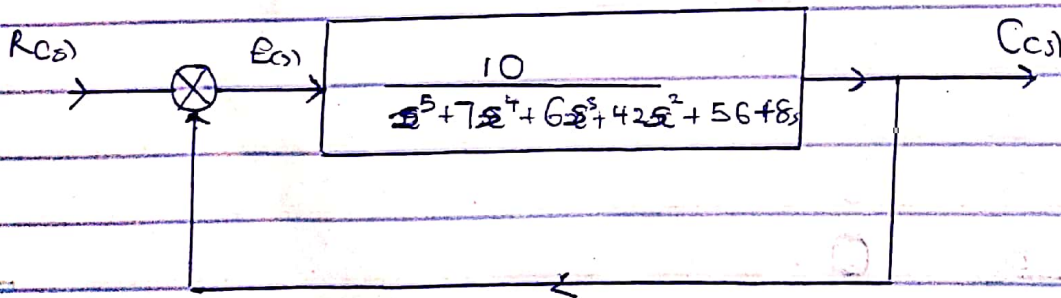 R(s) E(s) C(s)
10
s⁵+7s⁴+6s³+42s²+56+8s